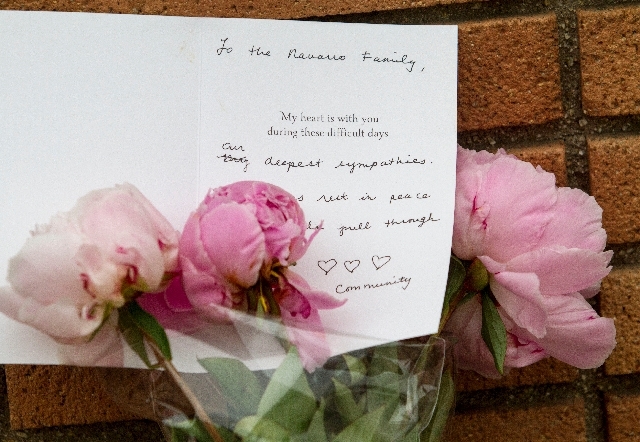 To the Navarro Family,
My heart is with you
during these difficult days
our
deepest sympathies.
rest in peace
pull through
Community